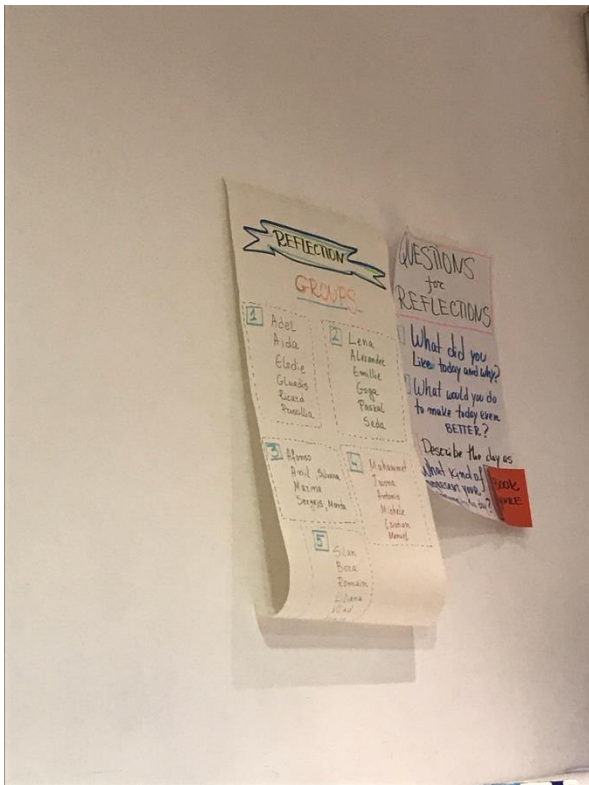 REFLECTION
GROUPS
1
Adel
Aida
Elodie
Ricard
Priscillia
2
Lena
Alexandre
Emilie
Goga
Pascal
Seda
3
Afonso
Anil, Silvana
Marina
Sergejs, Monta
4
Muhammet
Iwona
Antonio
Michele
Cristian
Manuel
5
Silan
Bora
Romain
Liliana
Vlad
QUESTIONS
for
REFLECTIONS
What did you
Like today and why?
What would you do
to make today even
BETTER?
Describe the day as
What kind of
your
today?